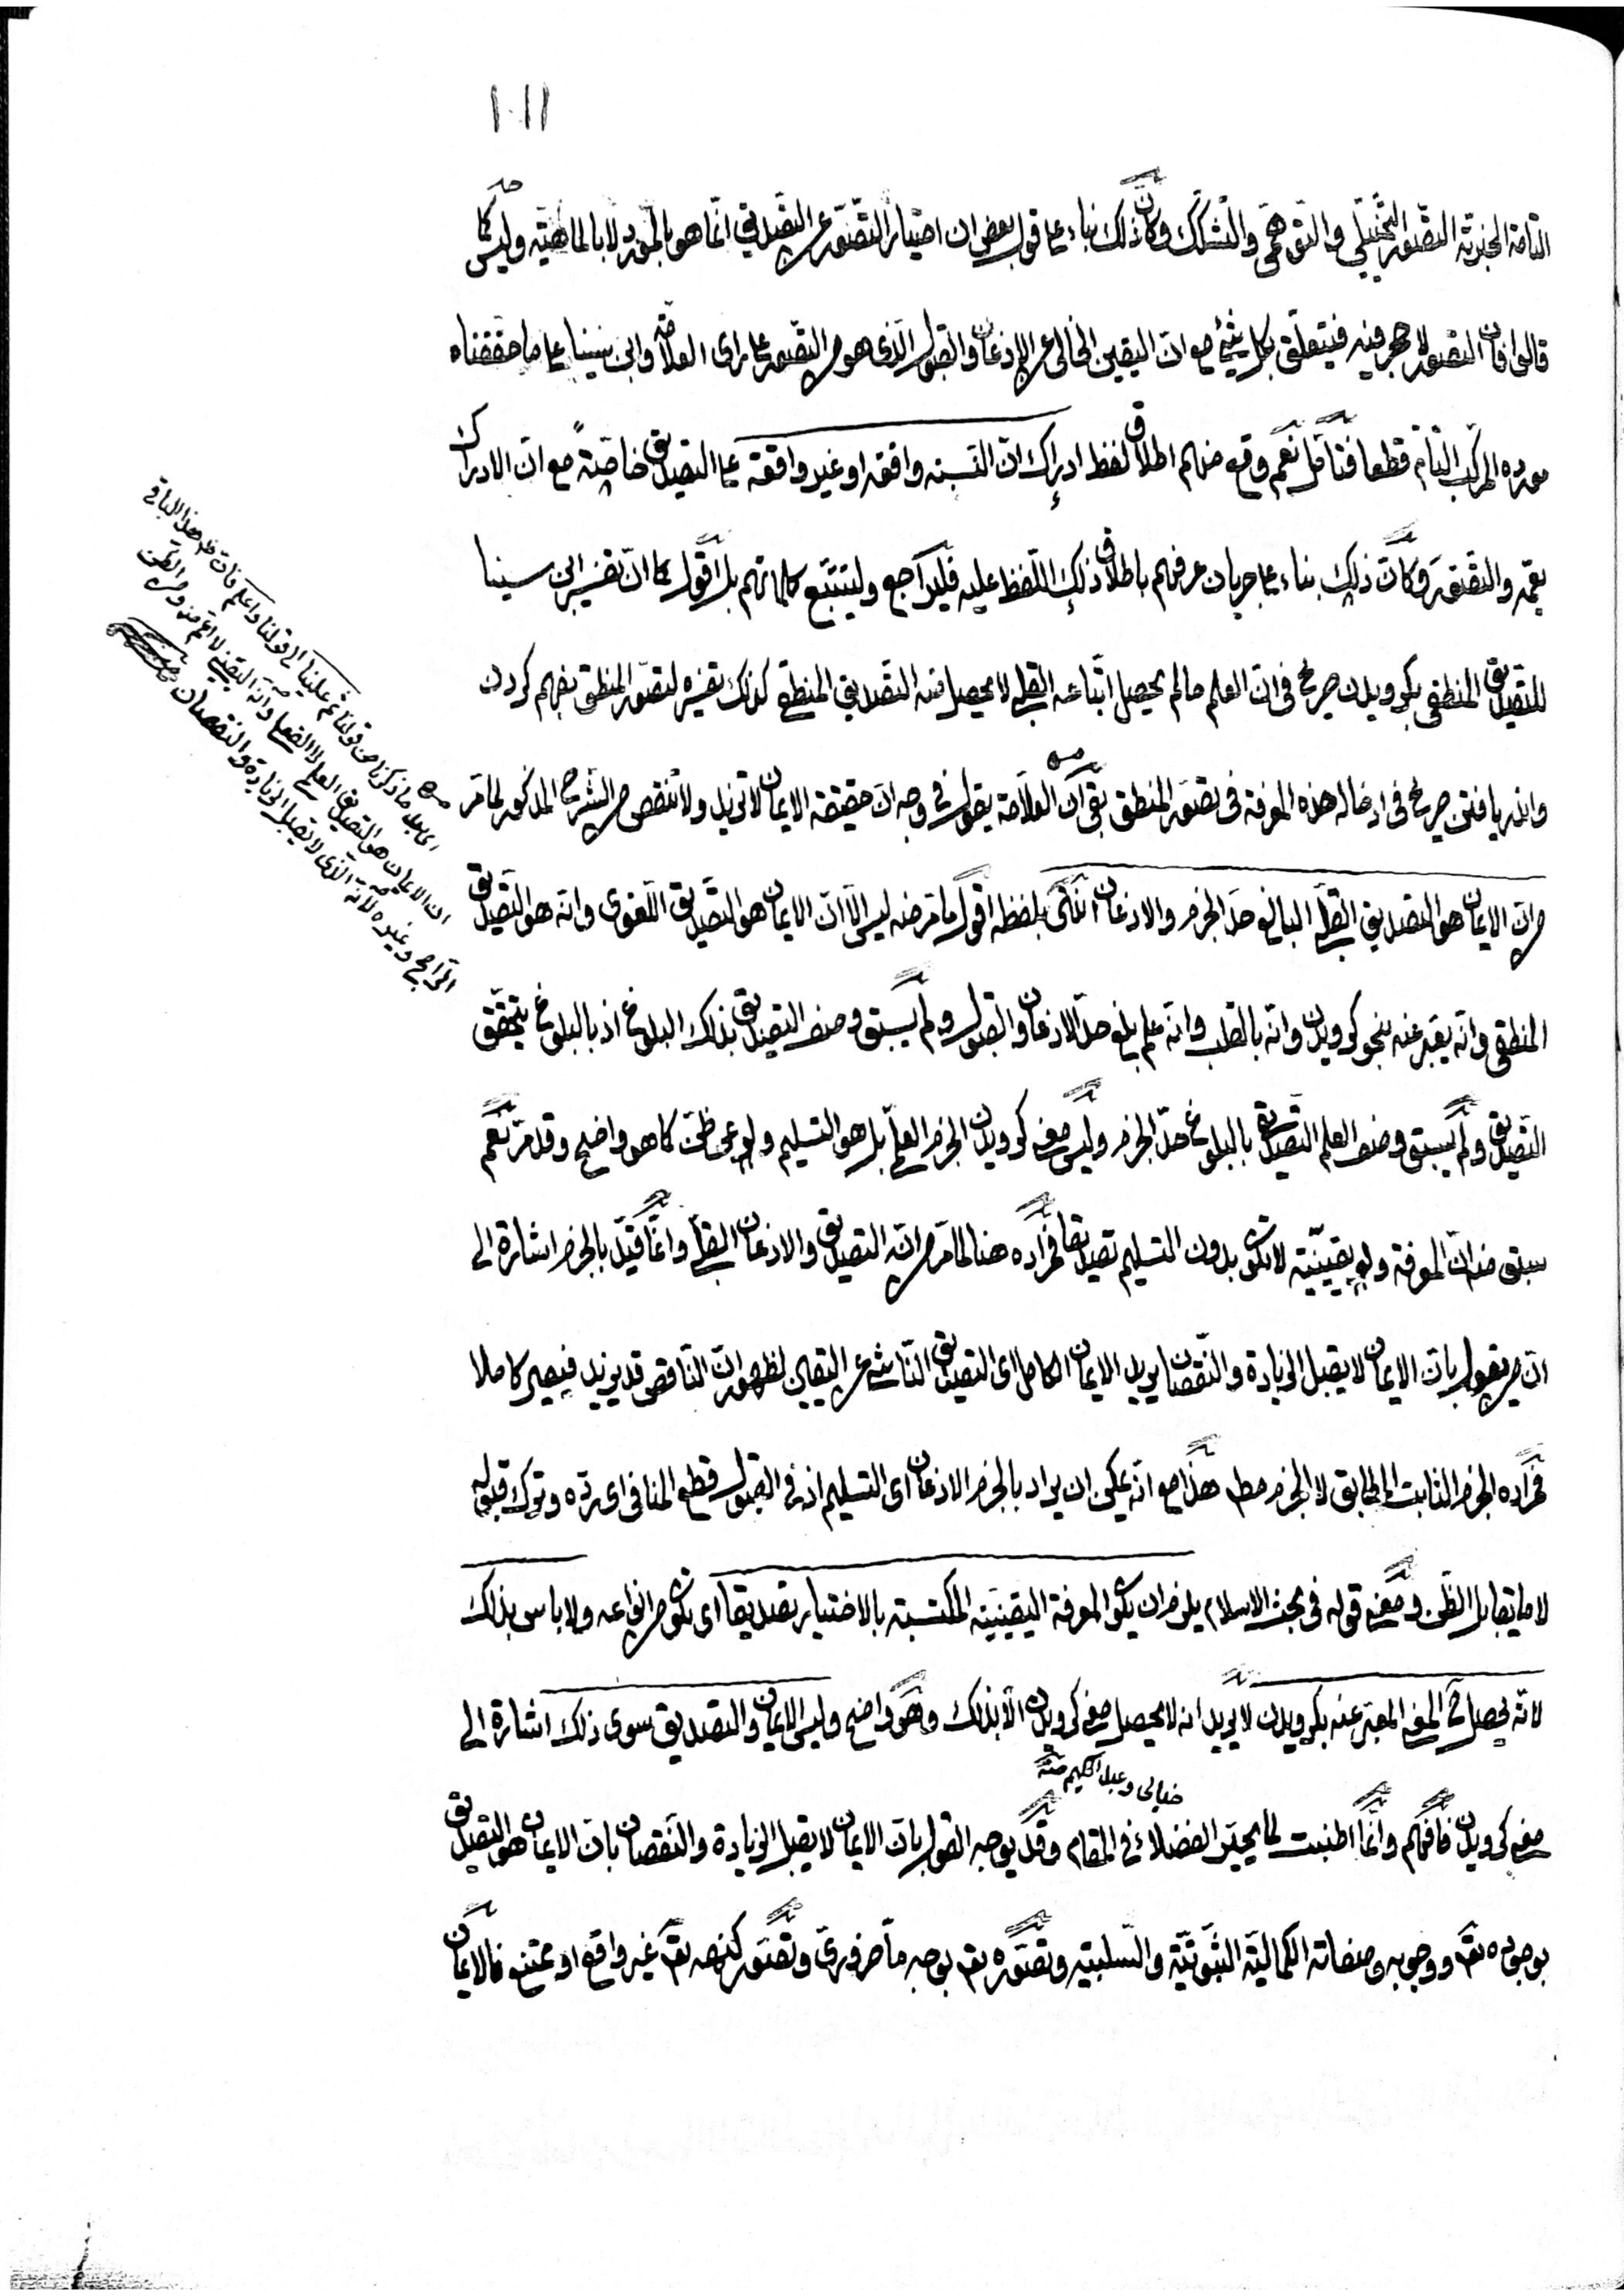 ١٠١١
التامة الخبرية التصور التخييلى والتوهمى والتشكك وكأن ذلك بناء على قول بعض ان امتياز التصور عن التصديق انما هو بالمورد لا بالماهية وليس كما
قالوا فان التصور لا حجر فيه فيتعلق بكل شئ مع ان اليقين الخالى عن الاذعان والقبول الذى هو من التصور على راى العلامة وابن سينا على ما حققناه
مورده المركب التام قطعا فتأمل نعم وقع منهم اطلاق لفظ ادراك ان النسبة واقعة او غير واقعة على التصديق خاصة مع ان الادراك
يعمه والتصور وكأن ذلك بناء على جريان عرفهم باطلاق ذلك اللفظ عليه فليراجع وليتتبع كلماتهم بل اقول كما ان تفسير ابن سينا
للتصديق المنطقى بكرويدن صريح فى ان العلم ما لم يحصل اتباعه القلبى لا يحصل منه التصديق المنطقى كذلك تفسيره لتصور المنطق بفهم كردن
واندر يافتن صريح فى ادخاله هذه المعرفة فى تصور المنطق بقى ان العلامة يقول فى وجه ان حقيقة الايمان لا تزيد ولا تنقص من الشرح المذكور لما مر
من ان الايمان هو التصديق القلبى البالغ حد الجزم والاذعان انتهى بلفظه اقول ما مر منه ليس الا ان الايمان هو التصديق اللغوى وانه هو التصديق
المنطقى وانه يعبر عنه بنحو كرويدن وانه بالقلب وانه علم بلغ حد الاذعان والقبول ولم يسبق وصف التصديق بذلك البلوغ اذ بالبلوغ يتحقق
التصديق ولم يسبق وصف العلم التصديقى بالبلوغ حد الجزم وليس معنى كرويدن الجزم العلمى بل هو التسليم ولو عن ظن كما هو واضح وقد مر نعم
سبق منه ان المعرفة ولو يقينية لا تكون بدون التسليم تصديقا فمراده هنا لما مر من انه التصديق والاذعان القلبى وانما قيد بالجزم اشارة الى
ان من يقول بان الايمان لا يقبل الزيادة والنقصان يريد الايمان الكامل اى التصديق الناشئ عن اليقين لظهور ان الناقص قد يزيد فيصير كاملا
فمراده الجزم الثابت المطابق لا الجزم مطلقا هذا مع انه يمكن ان يراد بالجزم الاذعان اى التسليم اذ فى القبول قطع المنافى اى رده وترك قبوله
لا ما يقابل الظن ومعنى قوله فى بحث الاسلام يلزم ان يكون المعرفة اليقينية المكتسبة بالاختيار تصديقا اى تكون من انواعه ولا باس بذلك
لانه يحصل ح المعنى المعبر عنه بكرويدن لا يريد انه لا يحصل معنى كرويدن الا بذلك وهو واضح وليس الايمان والتصديق سوى ذلك اشارة الى
معنى كرويدن فافهم وانما اطنبت لما يحير الفضلاء فى المقام وقد يوجه القول بان الايمان لا يقبل الزيادة والنقصان بان الايمان هو التصديق
خيالى وعبد الحكيم منه
بوجوده تعـ ووجوبه وصفاته الكمالية الثبوتية والسلبية وتصوره تعـ بوجه ما ضرورى وتصور كنهه تعـ غير واقع او ممتنع فالايمان
ما ذكرنا من قولنا ثم علينا الى قولنا واعلم
ان الايمان هو التصديق العلمى
الراجح وغيره لانه الذى لا يقبل الزيادة والنقصان